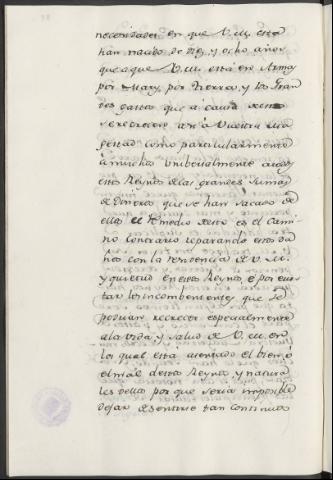 necesidades en que V. M. esta
han nacido de Diez, y ocho años
que aque V. M. está en Armas
por Mar, y por tierra, y los Gran
des gastos que a causa desto
se recrecen asi a Vuestra Ma
gestad, como particularmente
a muchos, unibersalmente a todos
estos Reynos de las grandes Sumas
de Dineros que se han sacado de
ellos el Remedio desto es el Cami
no Contrario reparando estos da
ños con la residencia de V. M.
y quietud en estos Reynos, é por evi
tar los incombenientes que se
podrian recrecer especialmente
a la vida y salud de V. M. en
lo qual está arentado el bien, ó
el mal destos Reynos y natura
les dellos por que seria imposible
dejar de sentirse tan Continuos